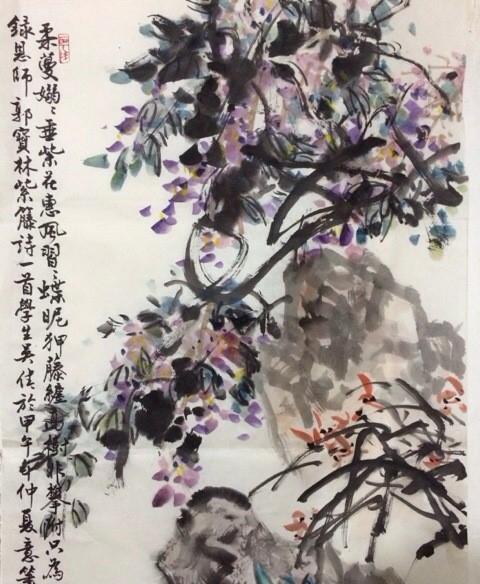 柔蔓嫋〻垂紫花惠風習〻蝶昵狎藤纏高樹非攀附只為
録恩師郭寶林紫籐詩一首學生美佳於甲午年仲夏意筆